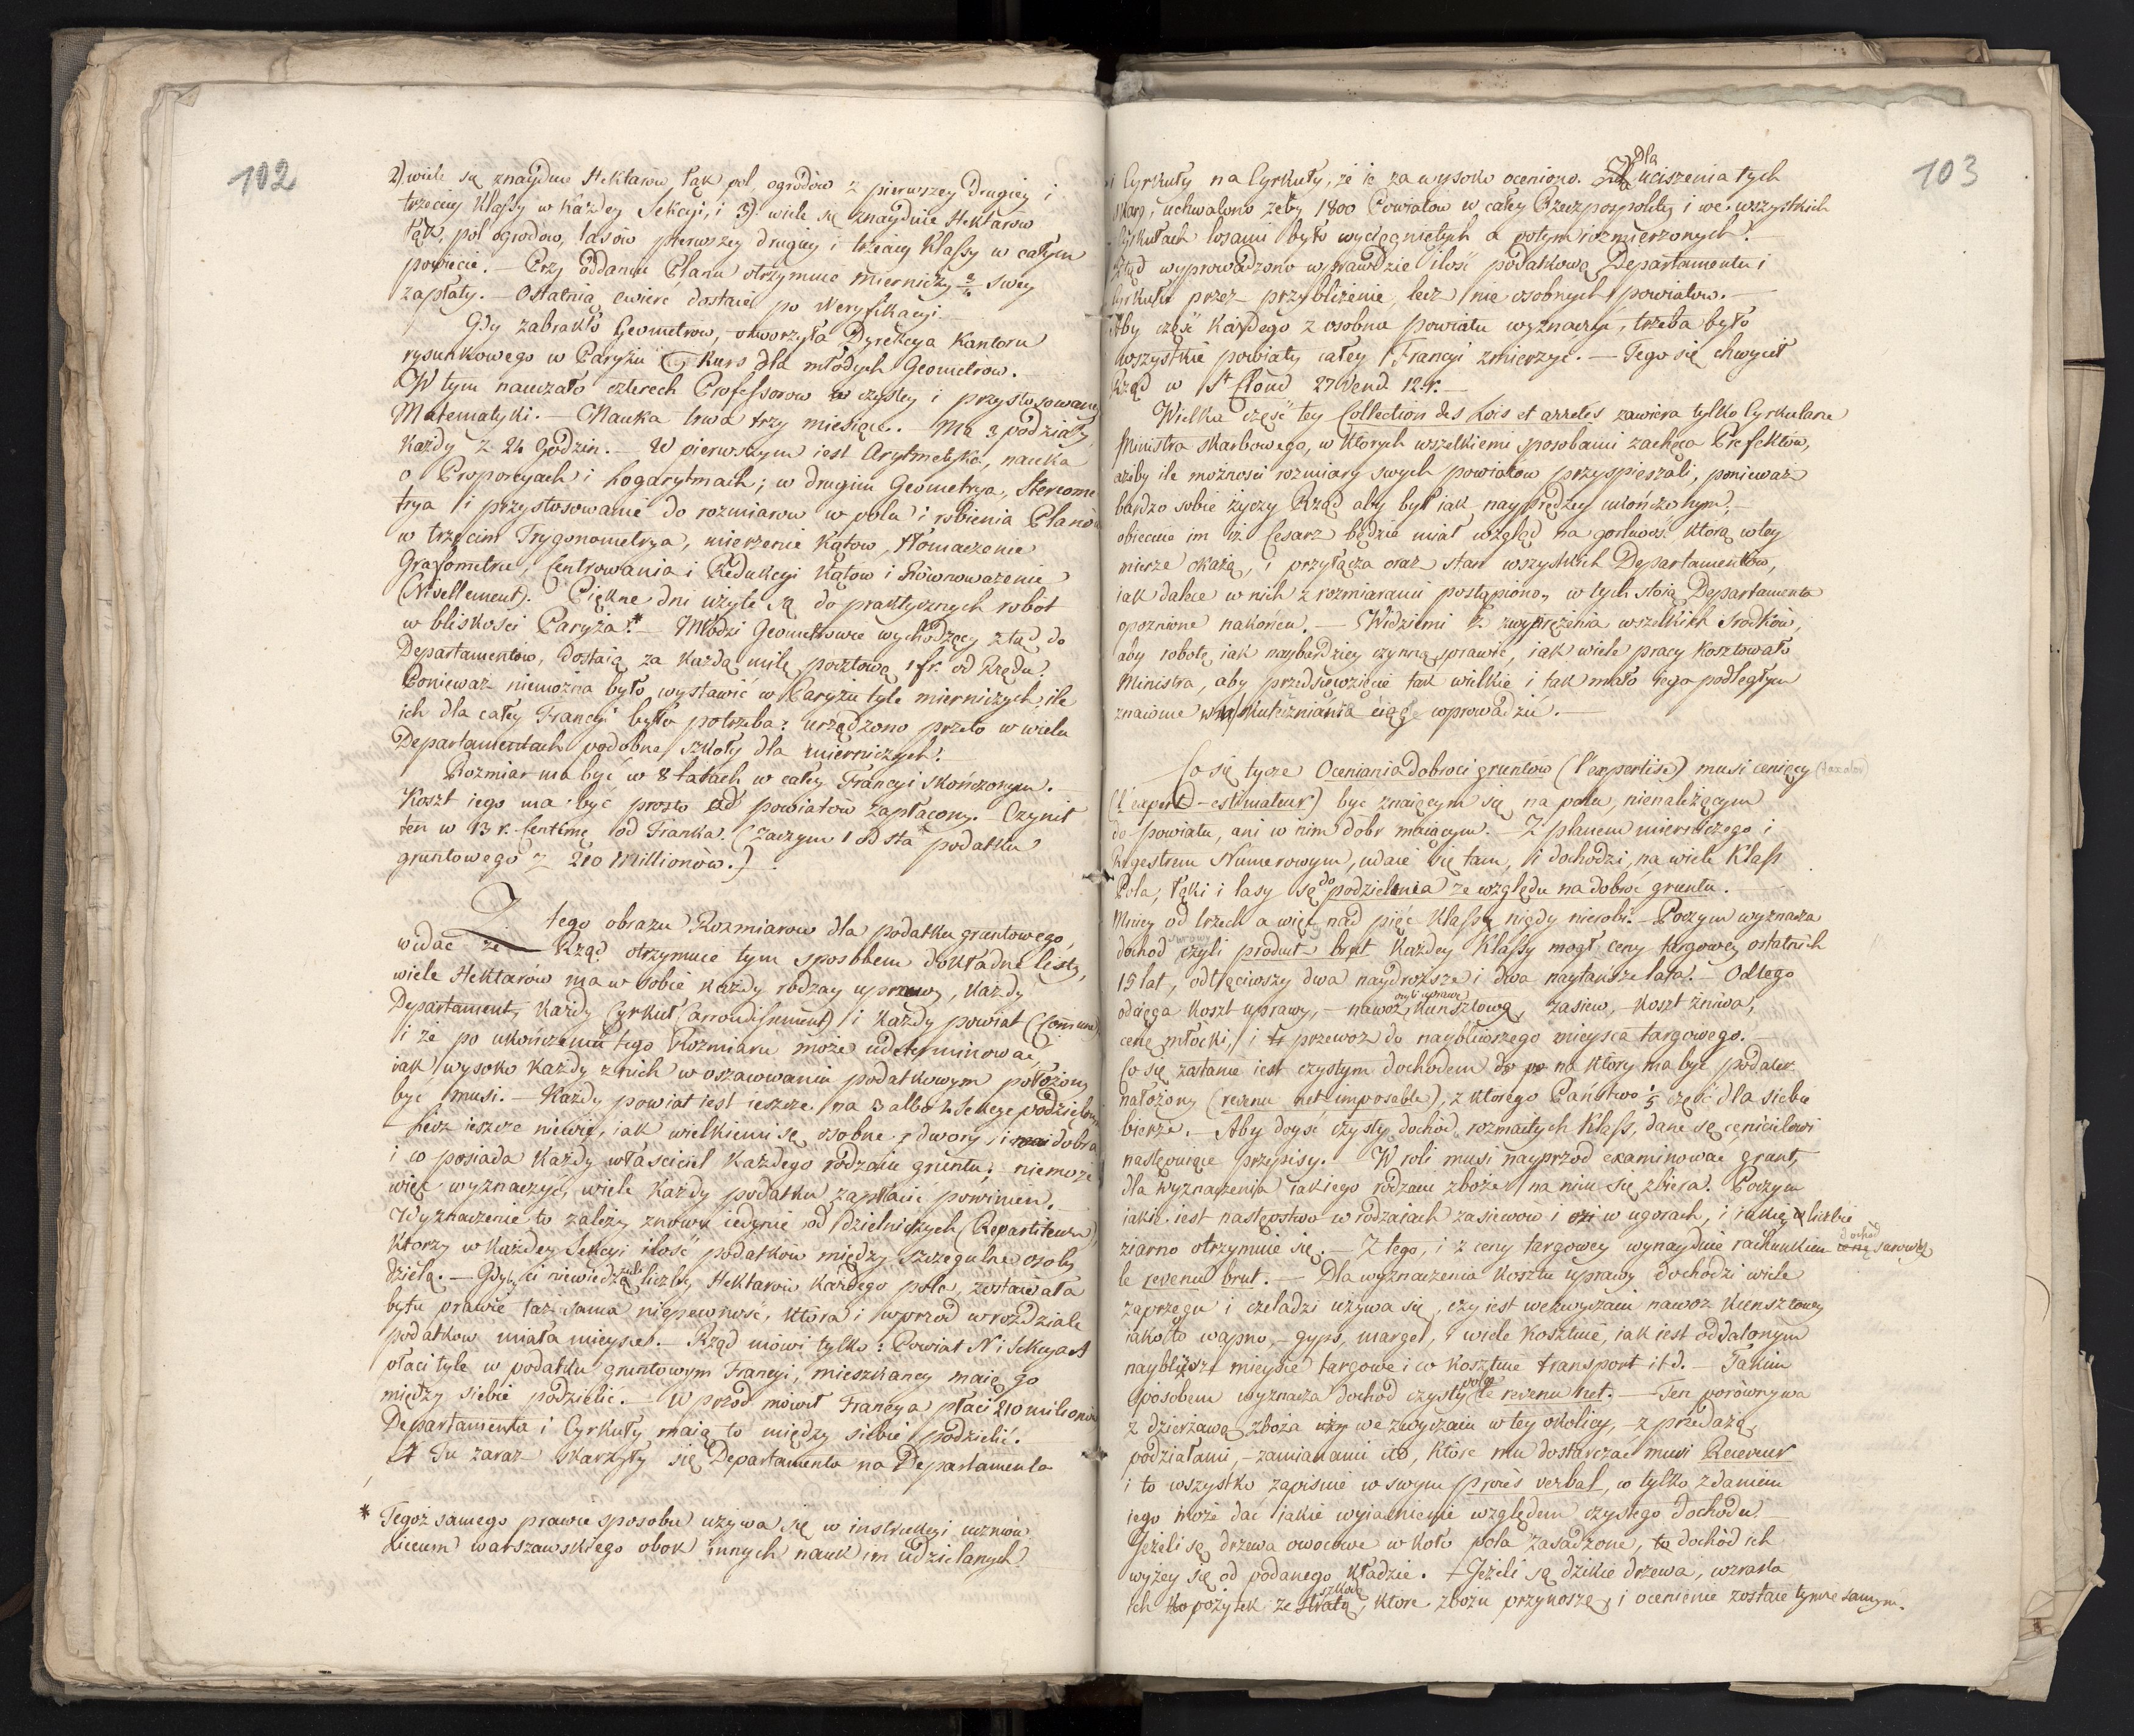 102
2) wiele się znayduie Hektarow łąk pol, ogrodów z pierwszey drugiey i
trzeciey Klassy w każdey Sekcyi, i 3) wiele się znayduie Hektarow
łąk, pól ogrodow, lasów pierwszey drugiey i trzeciey Klassy w całym
powiecie. — Przy oddaniu Planu otrzymuie mierniczy swey
zapłaty. — Ostatnią cwierć dostaie po Weryfikacyi. —
Gdy zabrakło Geometrow, otworzyła Dyrekcya Kantoru
rysunkowego w Paryżu kurs dla młodych Geometrów. —
W tym nauczało czterech Professorow czystey i przystosowaney
Matematyki. — Nauka trwa trzy miesiące. — Ma 3 podziały,
każdy z 24 Godzin. — W pierwszym iest Arytmetyka, nauka
o Proporcyach i Logarytmach; w drugim Geometrya, Stereome
trya i przystosowanie do rozmiarow w polu i robienia Planów
w trzecim Trygonometrya, mierzenie Kątow, tłomaczenie
Grafometru, Centrowania i Redukcyi Kątow i Równoważenie
(Nivellement). Piękne dni użyte są do praktycznych robót
w bliskości Paryża.* — Młodzi Geometrowie wychodzący ztąd do
Departamentów, dostaią za każdą milę pocztową 1 fr. od Rządu.
Ponieważ niemożna było wystawić w Paryżu tyle mierniczych, ile
ich dla całey Francyi było potrzeba: urządzono przeto w wielu
Departamentach podobne szkoły dla mierniczych.
Rozmiar ma być w 8 latach w całey Francyi skończonym. —
Koszt iego ma być prosto od powiatów zapłacony. — Czynił
ten w 13 r. Centimę od Franka. (zaczym 1 od sta podatku
gruntowego z 210 Millionów.)
Z tego obrazu Rozmiarow dla podatku gruntowego,
widać że Rząd otrzymuie tym sposobem dokładne listy,
wiele Hektarów ma w sobie każdy rodzay uprawy, każdy
Departament, każdy Cyrkuł (Arrondissement) i każdy powiat (Commune)
i że po ukończeniu tego Rozmiaru może udeterminować,
iak wysoko każdy z nich w oszacowaniu podatkowym położony
być musi. — Każdy powiat iest ieszcze na 3 albo 4 Sekcye podzielony
— Lecz ieszcze niewie, iak wielkiemi są osobne dwory i dobra
i co posiada każdy właściciel każdego rodzaiu gruntu; niemoże
więc wyznaczyć, wiele każdy podatku zapłacić powinien. —
Wyznaczenie to zależy znowu iedynie od dzielniczych (Repartiteurs),
ktorzy w każdey Sekcyi ilość podatków między szczegulne osoby
dzielą. — Gdyby ci niewiedzieli liczby Hektarów każdego pola, zostawała
bytu prawie taż sama niepewność, która i wprzod w rozdziale
podatkow miała mieysce. — Rząd mówi tylko: Powiat N i Sekcya A
płaci tyle w podatku gruntowym Francyi, mieszkancy maią go
między siebie podzielić. — W przod mówił Francya płaci 210 milionów
Departamenta i Cyrkuły maią to między siebie podzielić.
Tu zaraz skarżyły się Departamenta na Departamenta
* Tegoż samego prawie sposobu używa się w instrukcyi uczniów
Liceum warszawskiego obok innych nauk im udzielanych.
103
i Cyrkuły na Cyrkuły, że ie za wysoko oceniono. dla uciszenia tych
skarg, uchwalono żeby 1800 Powiatow w całey Rzeczpospolitey i we wszystkich
Cyrkułach losami było wyciągniętych a potym rozmierzonych. —
Ztąd wyprowadzono wprawdzie ilość podatkową Departamentu i
Cyrkułu przez przybliżenie, lecz nie osobnych powiatow. —
Aby część każdego z osobna powiatu wyznaczyć, trzeba było
wszystkie powiaty całey Francyi zmierzyć. — Tego się chwycił
Rząd w St Cloud 27 Vend. 12. r. —
Wielka część tey Collection des Lois et arretés zawiera tylko Cyrkularze
Ministra skarbowego, w ktorych wszelkiemi sposobami zachęca Prefektów,
ażeby ile możności rozmiary swych powiatow przyspieszali, ponieważ
bardzo sobie życzy Rząd aby był iak nayprędzey ukończonym; —
obiecuie im iż Cesarz będzie miał wzgląd na gorliwość, którą w tey
mierze okażą, i przyłącza oraz stan wszystkich Departamentów,
iak dalece w nich z rozmiarami postąpiono, w tych stoią Departamenta
opoznione na końcu. — Widziemi z zwyprężenia wszelkich srodków,
aby robotę iak naybardziey czynną sprawić, iak wiele pracy kosztowało
Ministra, aby przedsięwzięcie tak wielkie i tak mało iego podległym
znaiome w ciąg wprowadzić. —
Co się tycze Oceniania dobroci gruntów (l'expertise) musi ceniący (taxator)
(l'expert-estimateur) być znaiącym się na polu, nienależącym
do powiatu, ani w nim dobr maiącym. — Z planem mierniczego i
Regestrem Numerowym, udaie się tam, i dochodzi, na wiele Klass
Pola, łąki i lasy są do podzielenia ze względu na dobroć gruntu. —
Mniey od trzech a więcey nad pięć Klass nigdy nierobi. — Poczym wyznacza
dochod surowy czyli produit brut każdey Klassy mogł ceny targowey ostatnich
15 lat, odtrąciwszy dwa naydroższe i dwa naytańsze lata. — Od tego
odciąga koszt uprawy, — nawoz czyli uprawę kunsztową, zasiew, koszt żniwa,
cenę młocki, i przewoz do naybliższego mieysca targowego. —
Co się zostanie iest czystym dochodem na ktory ma być podatek
nałożony (revenu net imposable), z ktorego Państwo 1/5 część dla siebie
bierze. — Aby doyść czysty dochod rozmaitych Klass, dane są cenicielowi
następuiące przepisy. W roli musi nayprzod examinować grunt,
dla wyznaczenia iakiego rodzaiu zboże na nim się zbiera. Poczym
iakie iest następstwo w rodzaiach zasiewow i w ugorach, i w iakiey liczbie
ziarno otrzymuie się. — Z tego, i z ceny targowey wynayduie rachunkiem dochod surowy
le revenu brut. — Dla wyznaczenia kosztu uprawy dochodzi wiele
zaprzęgu i czeladzi używa się, czy iest we zwyczaiu nawoz kunsztowy
iako to wapno, — gyps, margel, i wiele kosztuie, iak iest oddalonym
naybliższe mieysce targowe i co kosztuie transport itd. — Takim
sposobem wyznacza dochod czysty le revenu net. — Ten porównywa
z dzierżawą zboża we zwyczaiu w tey okolicy, — z przedażą,
podziałami, — zamianami itd, które mu dostarczać musi Receveur
i to wszystko zapisuie w swym procès verbal, co tylko zdaniem
iego może dać iakie wyiaśnienie względem czystego dochodu. —
Jeżeli są drzewa owocowe w koło pola zasadzone, to dochód ich
wyżey się od podanego kładzie. + Jeżeli są dzikie drzewa, wzrasta
ich pożytek ze szkodą, ktore zbożu przynoszą, i ocenienie zostaie tymże samym.